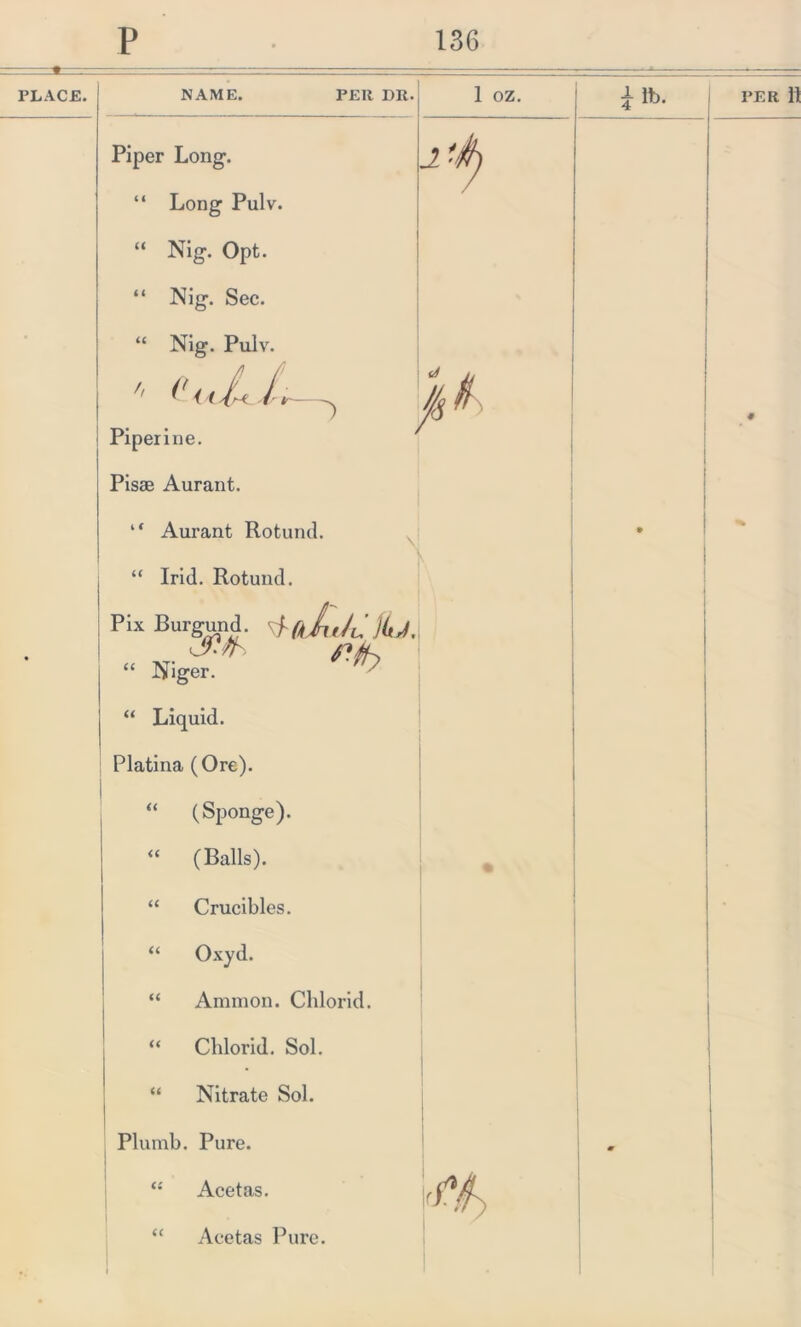 P 136
PLACE. NAME. PER DR. 1 OZ. ¼ lb. PER lt
Piper Long.
“ Long Pulv.
“ Nig. Opt.
“ Nig. Sec.
“ Nig. Pulv.
"
Piperine.
Pisæ Aurant.
“ Aurant Rotund.
“ Irid. Rotund.
Pix Burgund.
“ Niger.
“ Liquid.
Platina (Ore).
“ (Sponge).
“ (Balls).
“ Crucibles.
“ Oxyd.
“ Ammon. Chlorid.
“ Chlorid. Sol.
“ Nitrate Sol.
Plumb. Pure.
“ Acetas.
“ Acetas Pure.